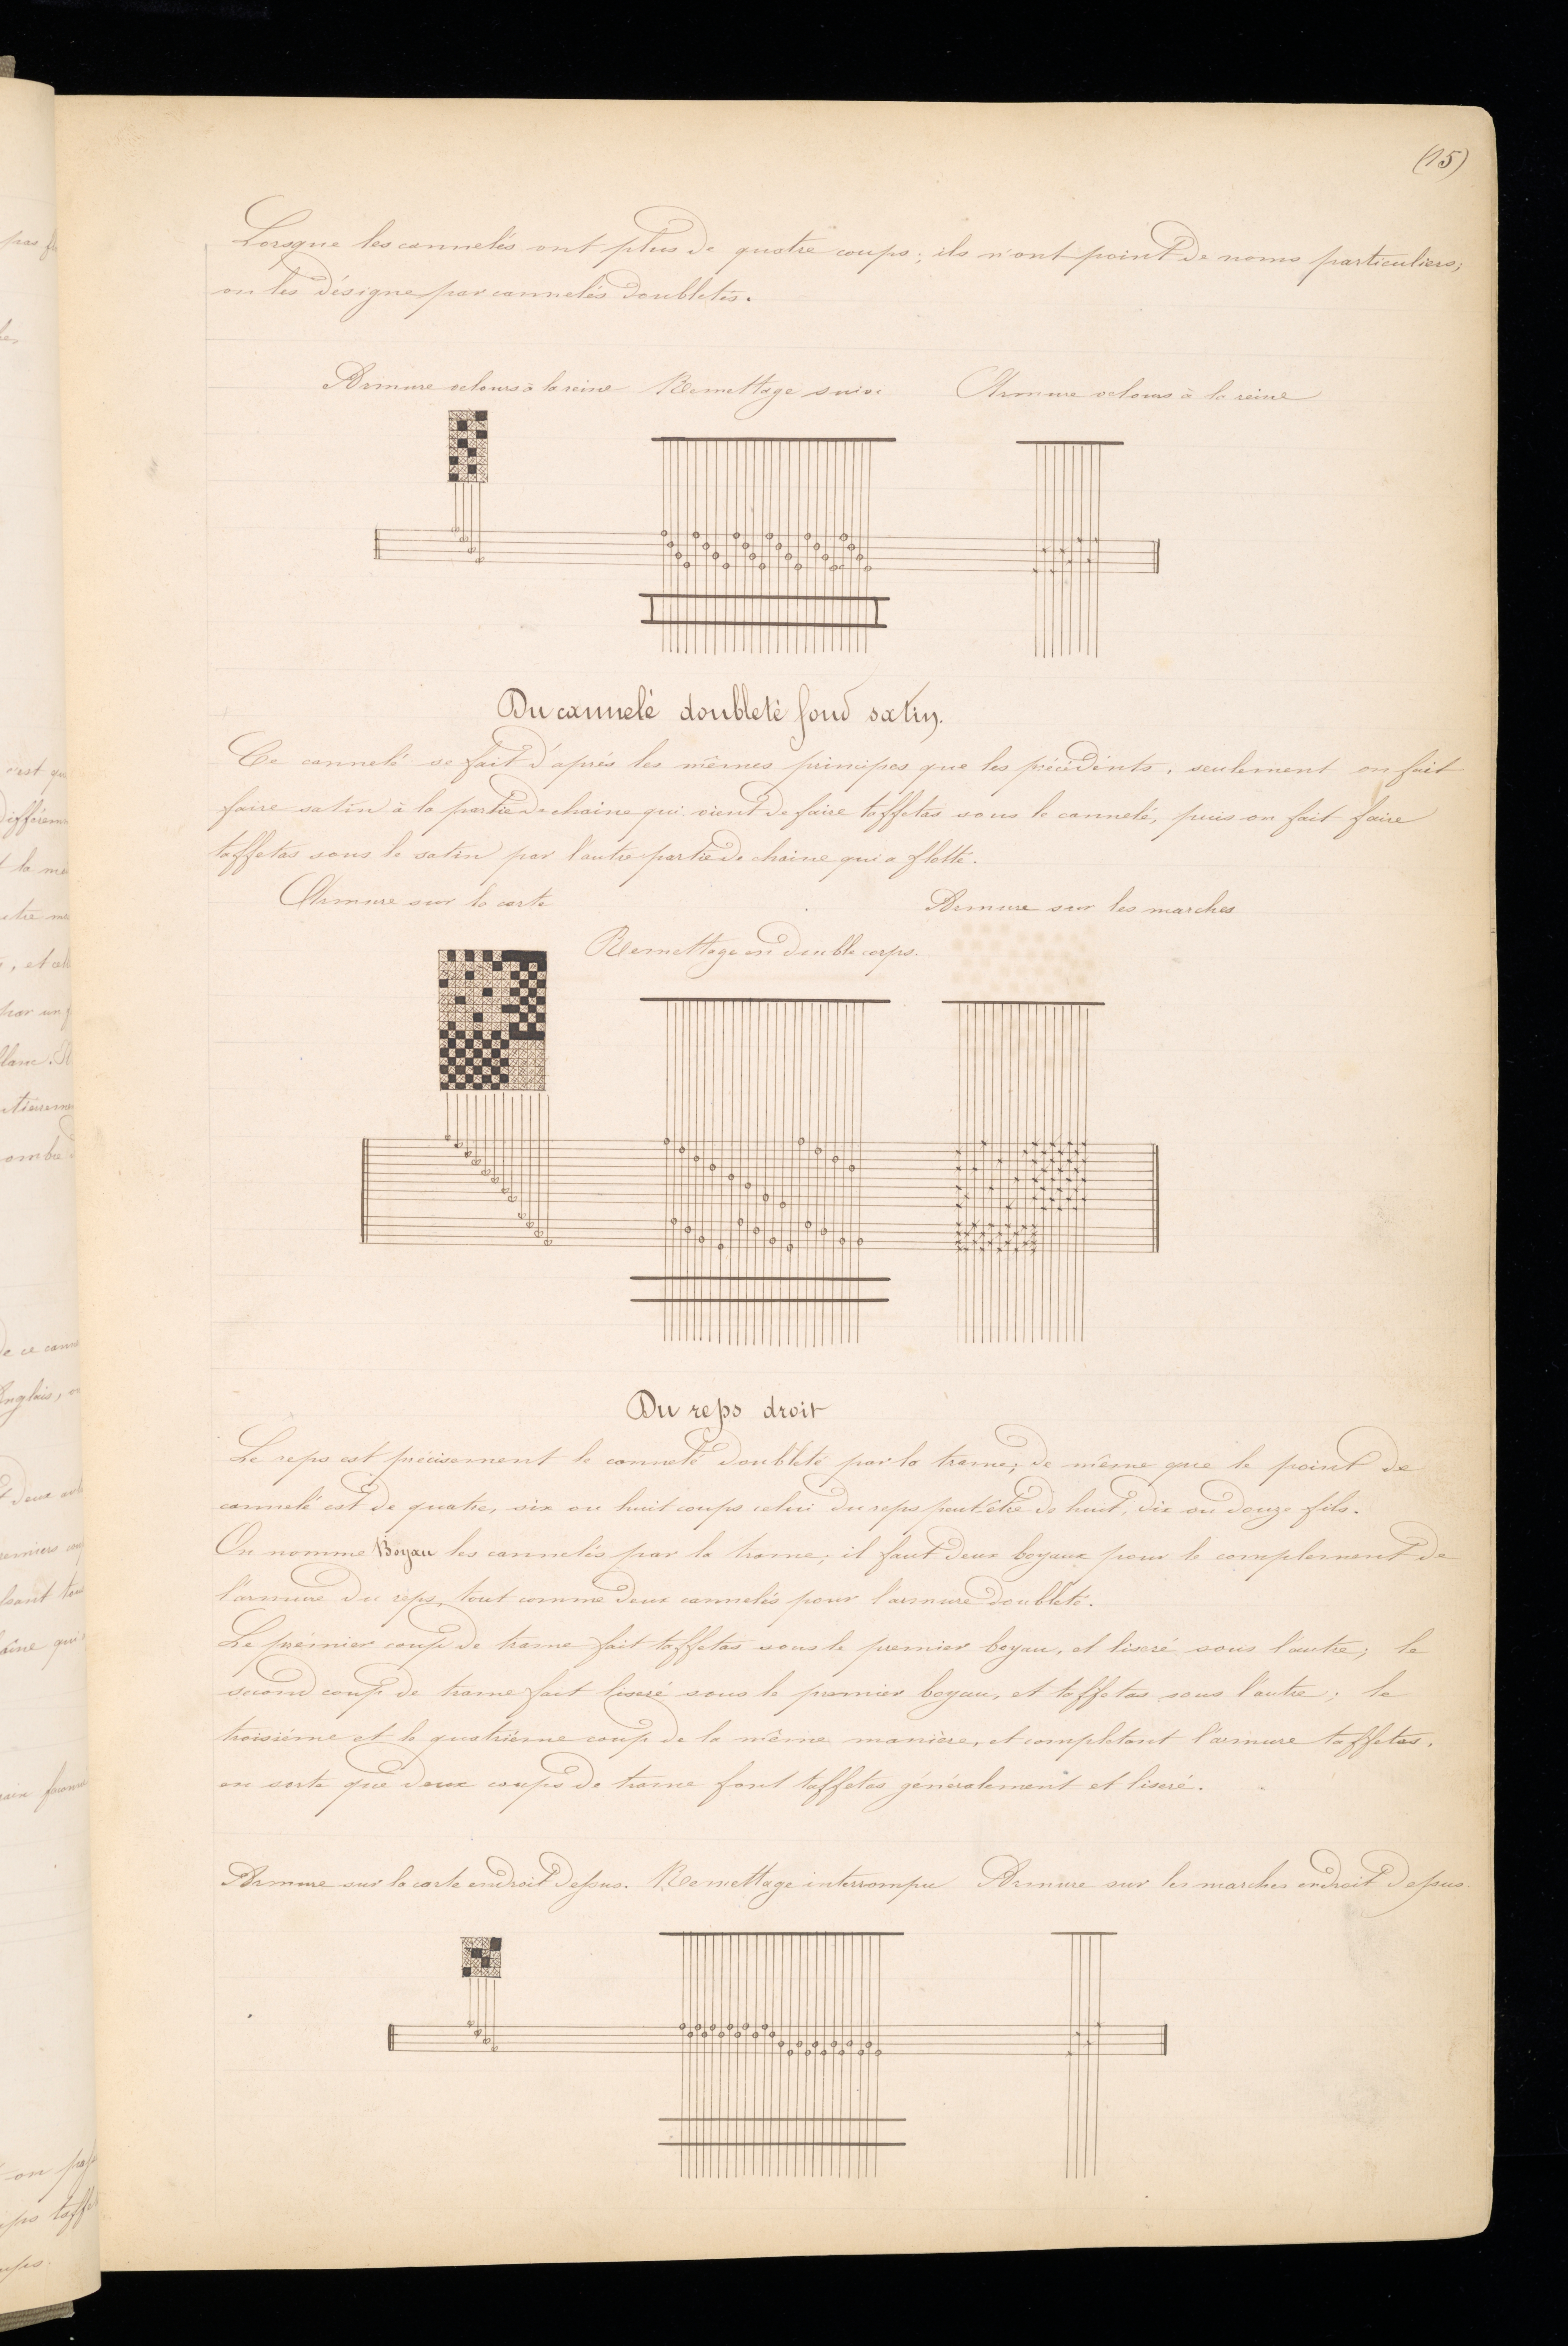 (15)
Lorsque les cannelés ont plus de quatre coups; ils n'ont point de noms particuliers;
on les désigne par cannelés doubletés.
Armure velours à la reine Remettage suivi Armure velours à la reine
Du cannelé doubleté fond satin.
Ce cannelé se fait d'après les mêmes principes que les précédents, seulement on fait
faire satin à la partie de chaine qui vient de faire taffetas sous le cannelé, puis on fait faire
taffetas sous le satin par l'autre partie de chaine qui a flotté.
Armure sur la carte
Armure sur les marches
Remettage en double corps.
Du reps droit
Le reps est précisement le cannelé doubleté par la trame; de même que le point de
cannelé est de quatre, six ou huit coups celui du reps peut-être de huit, dix ou douze fils.
On nomme Boyau les cannelés par la trame; il faut deux boyaux pour le complement de
l'armure du reps, tout comme deux cannelés pour l'armure doubleté.
Le prémier coup de trame fait taffetas sous le premier boyau, et liseré sous l'autre; le
second coup de trame fait liseré sous le premier boyau, et taffetas sous l'autre; le
troisième et le quatrième coup de la même manière, et completant l'armure taffetas,
en sorte que deux coups de trame font taffetas généralement et liseré.
Armure sur la carte endroit dessus. Remettage interrompu Armure sur les marches endroit dessus